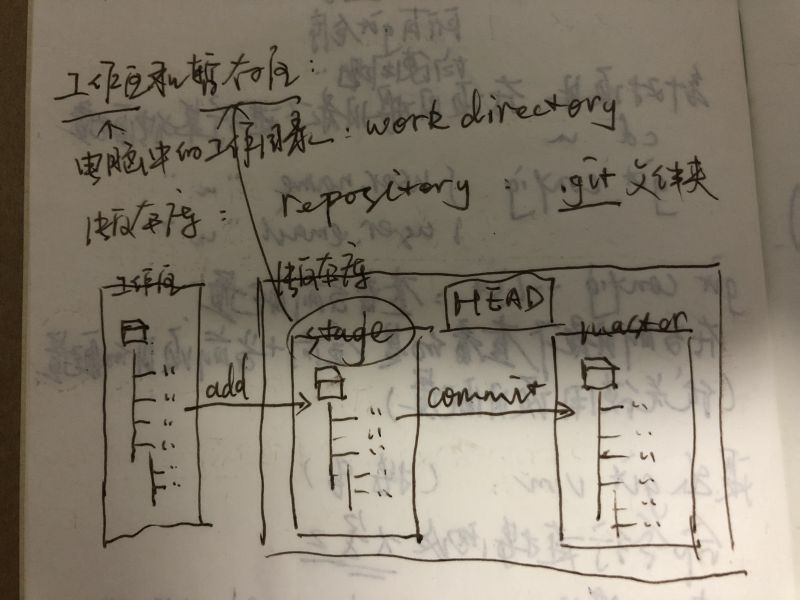 工作区和暂存区:
电脑中的工作目录: work directory
版本库: repository: .git 文件夹
工作区 版本库
HEAD
stage master
add commit